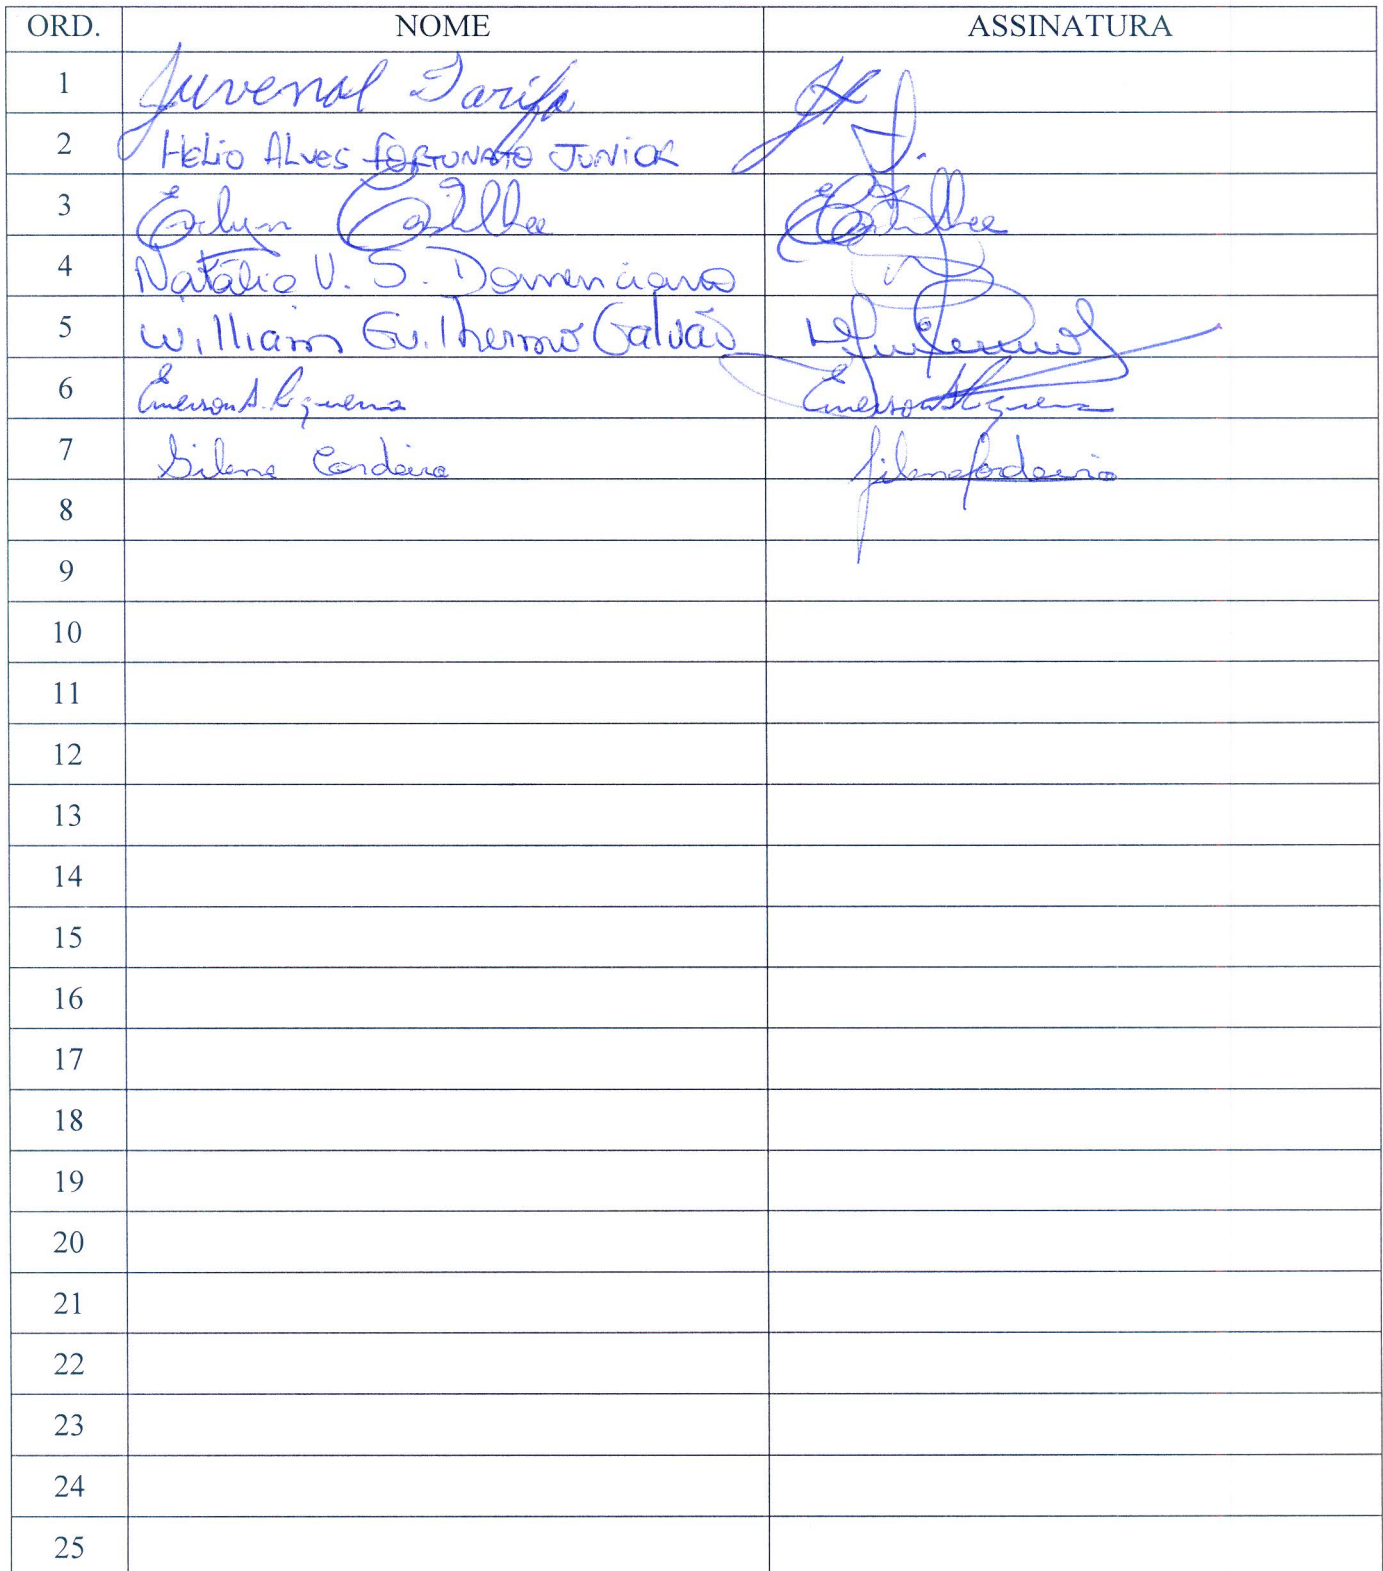 ORD. NOME ASSINATURA
1 Juvenal Tarifa
2 HELIO ALVES FORTUNATO JUNIOR
3 Evelyn Castilho
4 Natália V. S. Domenciano
5 William Guilherme Galvão
6 Emerson A. Siqueira Emerson A Siqueira
7 Silene Cordeiro Silene Cordeiro
8
9
10
11
12
13
14
15
16
17
18
19
20
21
22
23
24
25